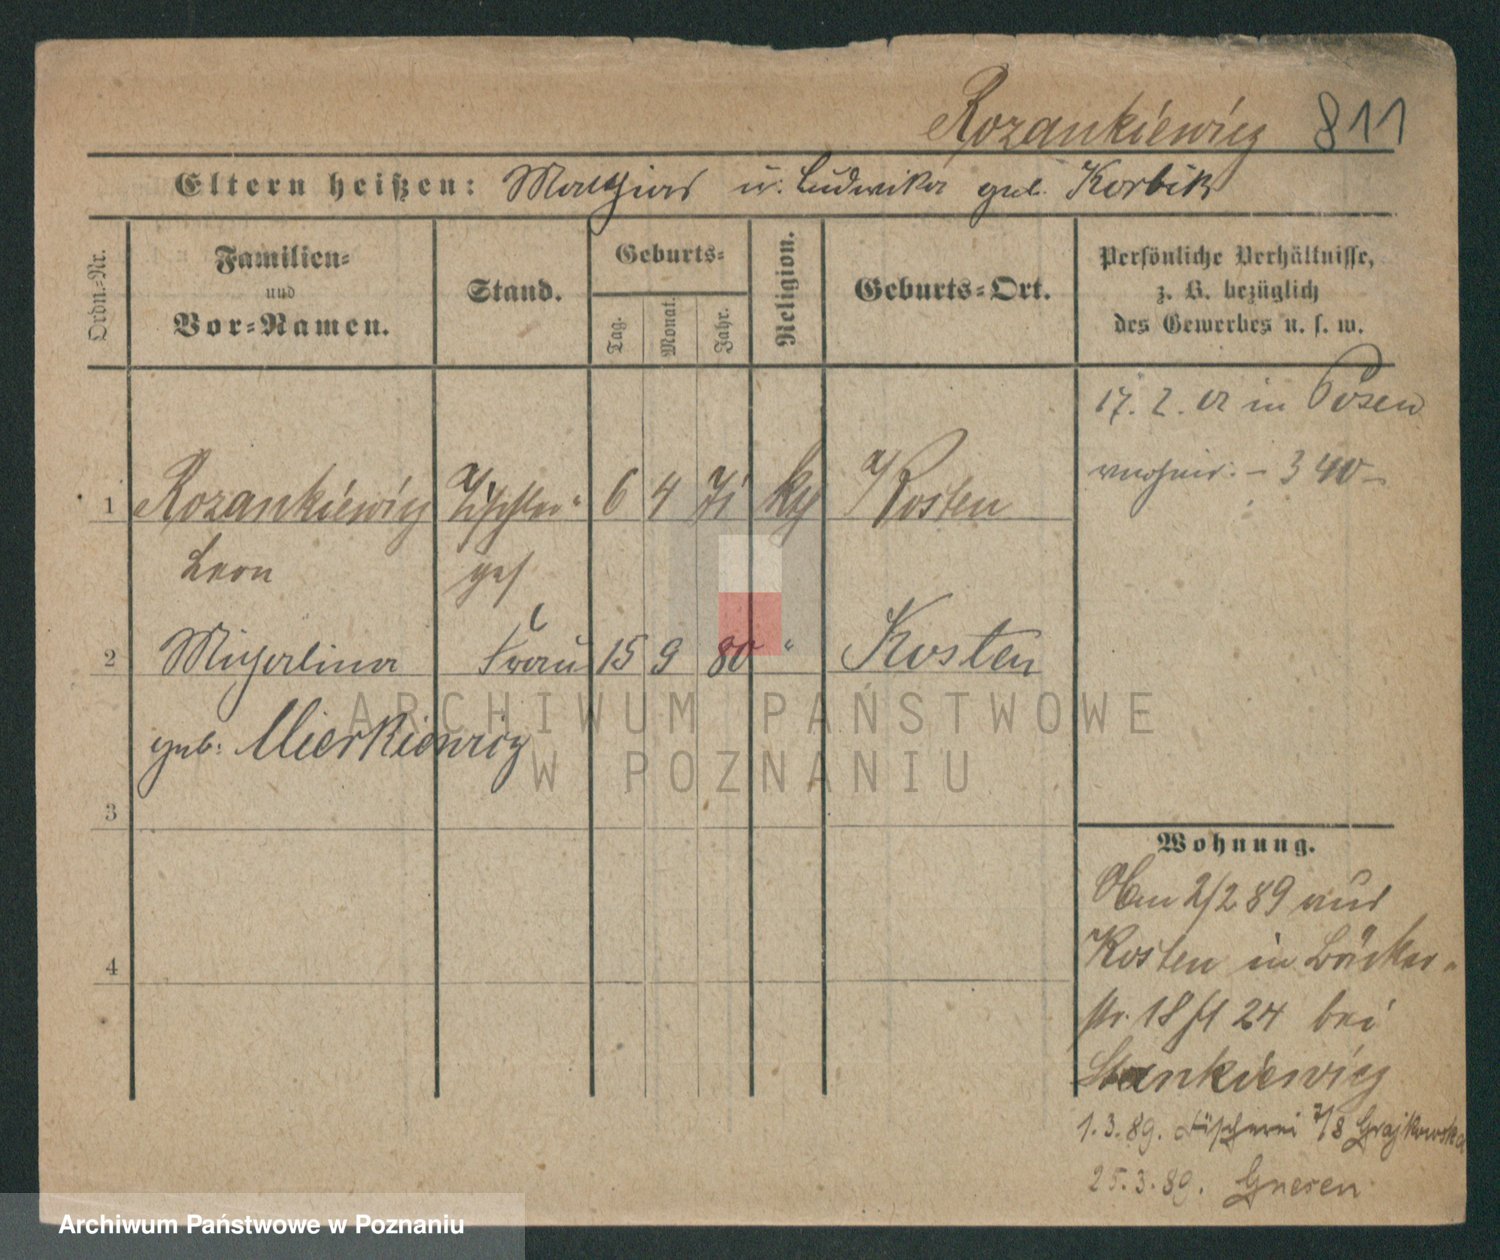 Rozankiewicz 811
Eltern heißen: Mathias u. Ludwika geb. Korbik
Ordn.-Nr.
Familien-
und
Vor-Namen.
Stand.
Geburts-
Tag.
Monat.
Jahr.
Religion.
Geburts-Ort.
Persönliche Verhältnisse,
z. B. bezüglich
des Gewerbes u. s. w.
17. 2. in Posen
1 Rozankiewicz Tischler- 6 4 71 kth Kosten
Leon ges
2 Michalina Frau 15 9 80 " Kosten
geb: Mierkiewicz
3
4
Wohnung.
2/2 89 aus
Kosten in Bäcker-
str. 18 24 bei
Stankiewicz
1.3.89. Fischerei 7/8 Grajkowska
25.3.89. Gnesen
ARCHIWUM PAŃSTWOWE
W POZNANIU
Archiwum Państwowe w Poznaniu